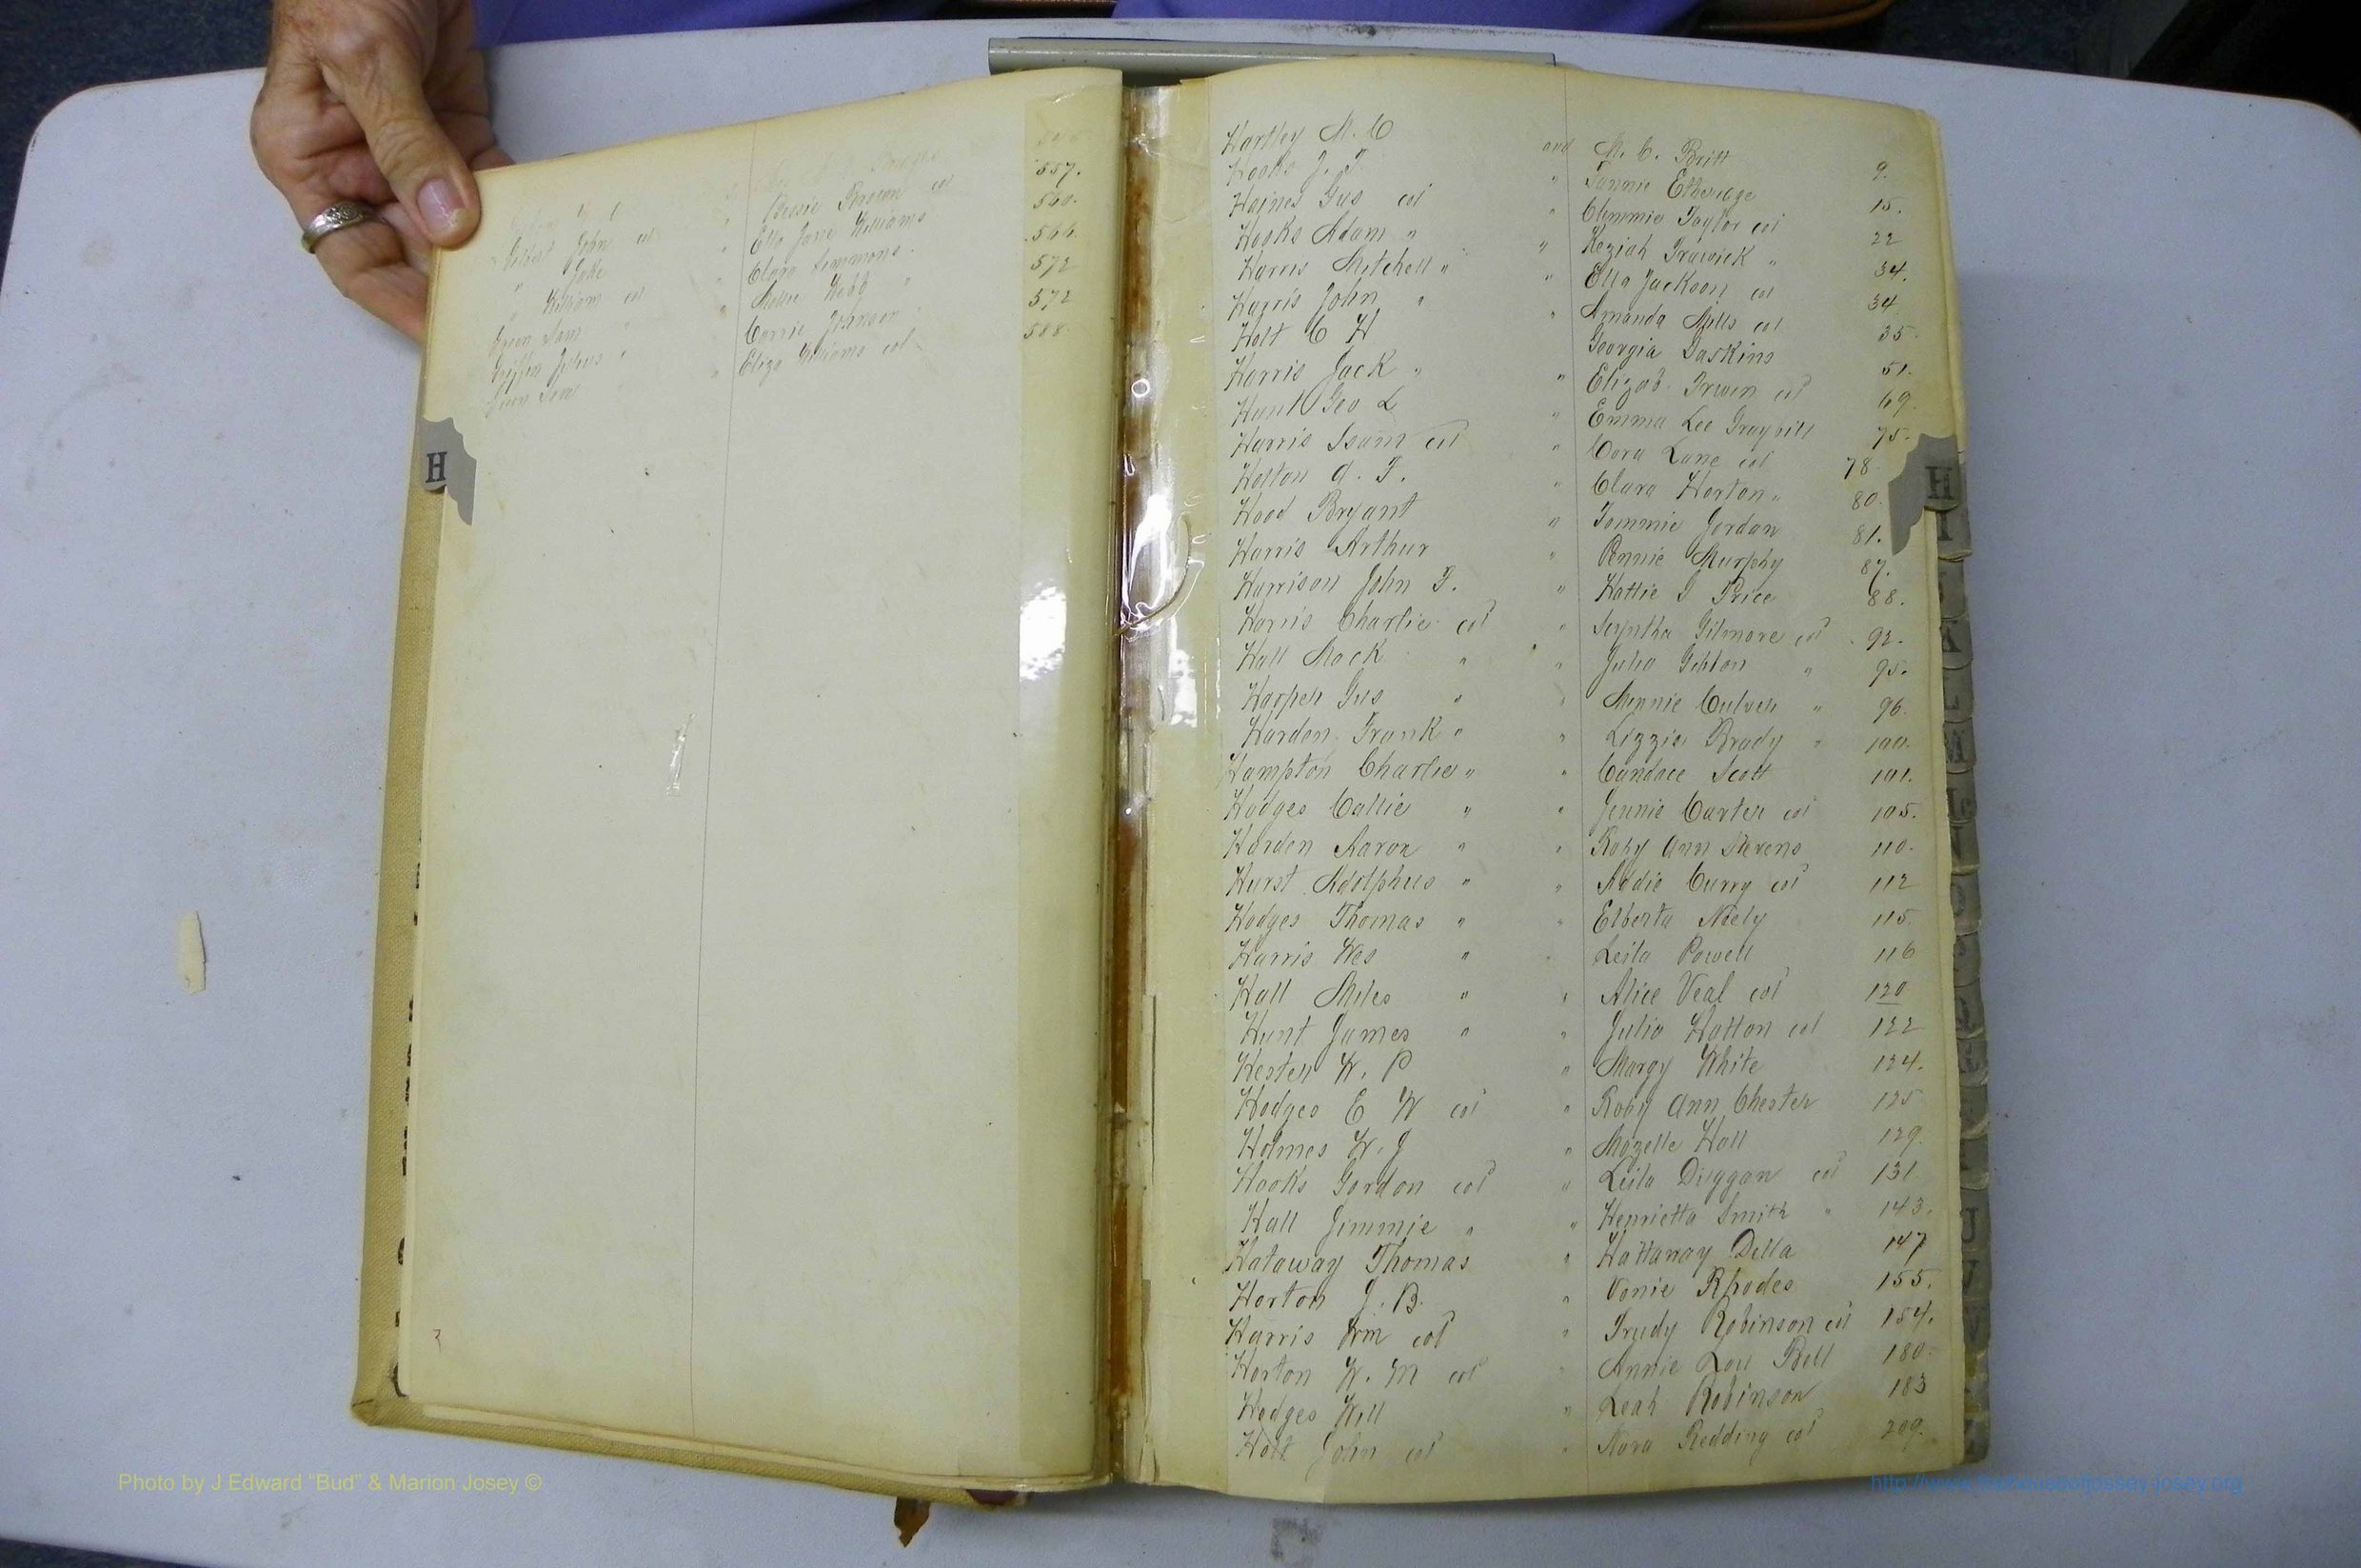 557.
Bessie Brown col 560.
Gilbert John col " Ella Jane Williams 566.
" Jake " Clara Simmons 572
" William col " Mollie Webb " 572
Green Sam " Carrie Johnson 588
Griffin " " Eliza Williams col
Green
H
Hartley M. C and M. C. Britt 9.
Hooks J. T. " Fannie Etheridge 15.
Haines Gus col " Clemmie Taylor col 22
Hooks Adam " " Keziah Trawick " 34.
Harris Mitchell " " Ella Jackson col 34
Harris John " " Amanda Mills col 35
Holt C H Georgia Gaskins 51.
Harris Jack " " Elizab. Irwin col 69
Hunt Geo L " Emma Lee Graybill 75.
Harris Isam col " Cora Lane col 78
Holton A. F. " Clara Horton " 80.
Hood Bryant " Tommie Jordan 81.
Harris Arthur " Pennie Murphy 87.
Harrison John F. " Hattie I Price 88.
Harris Charlie col " Scyntha Gilmore col 92.
Hall Mack " " Julia Gibson " 95.
Harper Gus " " Minnie Culver " 96.
Harden Frank " " Lizzie Brady " 100.
Hampton Charlie " " Candace Scott 101.
Hodges Callie " " Jennie Carter col 105.
Harden Aaron " " Roby Ann Stevens 110.
Hurst Adolphus " " Addie Curry col 112
Hodges Thomas " " Elberta Neely 115.
Harris Wes " " Leila Powell 116
Hall Miles " " Alice Veal col 120
Hunt James " " Julia Hatton col 122
Hester W. P " Margy White 124.
Hodges E W col " Roby Ann Chester 125
Holmes W. J " Mozelle Hall 129.
Hooks Gordon col " Leila Duggan col 131
Hall Jimmie " " Henrietta Smith " 143.
Hataway Thomas " Hattaway Della 147
Horton J. B. " Vonie Rhodes 155.
Harris Wm col " Trudy Robinson col 154.
Horton W. M col " Annie Lou Bell 180.
Hodges Will " Leah Robinson 183
Holt John col " Nora Redding col 209.
H
I
K
L
M
Mc
U
V
W
Photo by J Edward "Bud" & Marion Josey ©
http://www.thehouseofjossey-josey.org